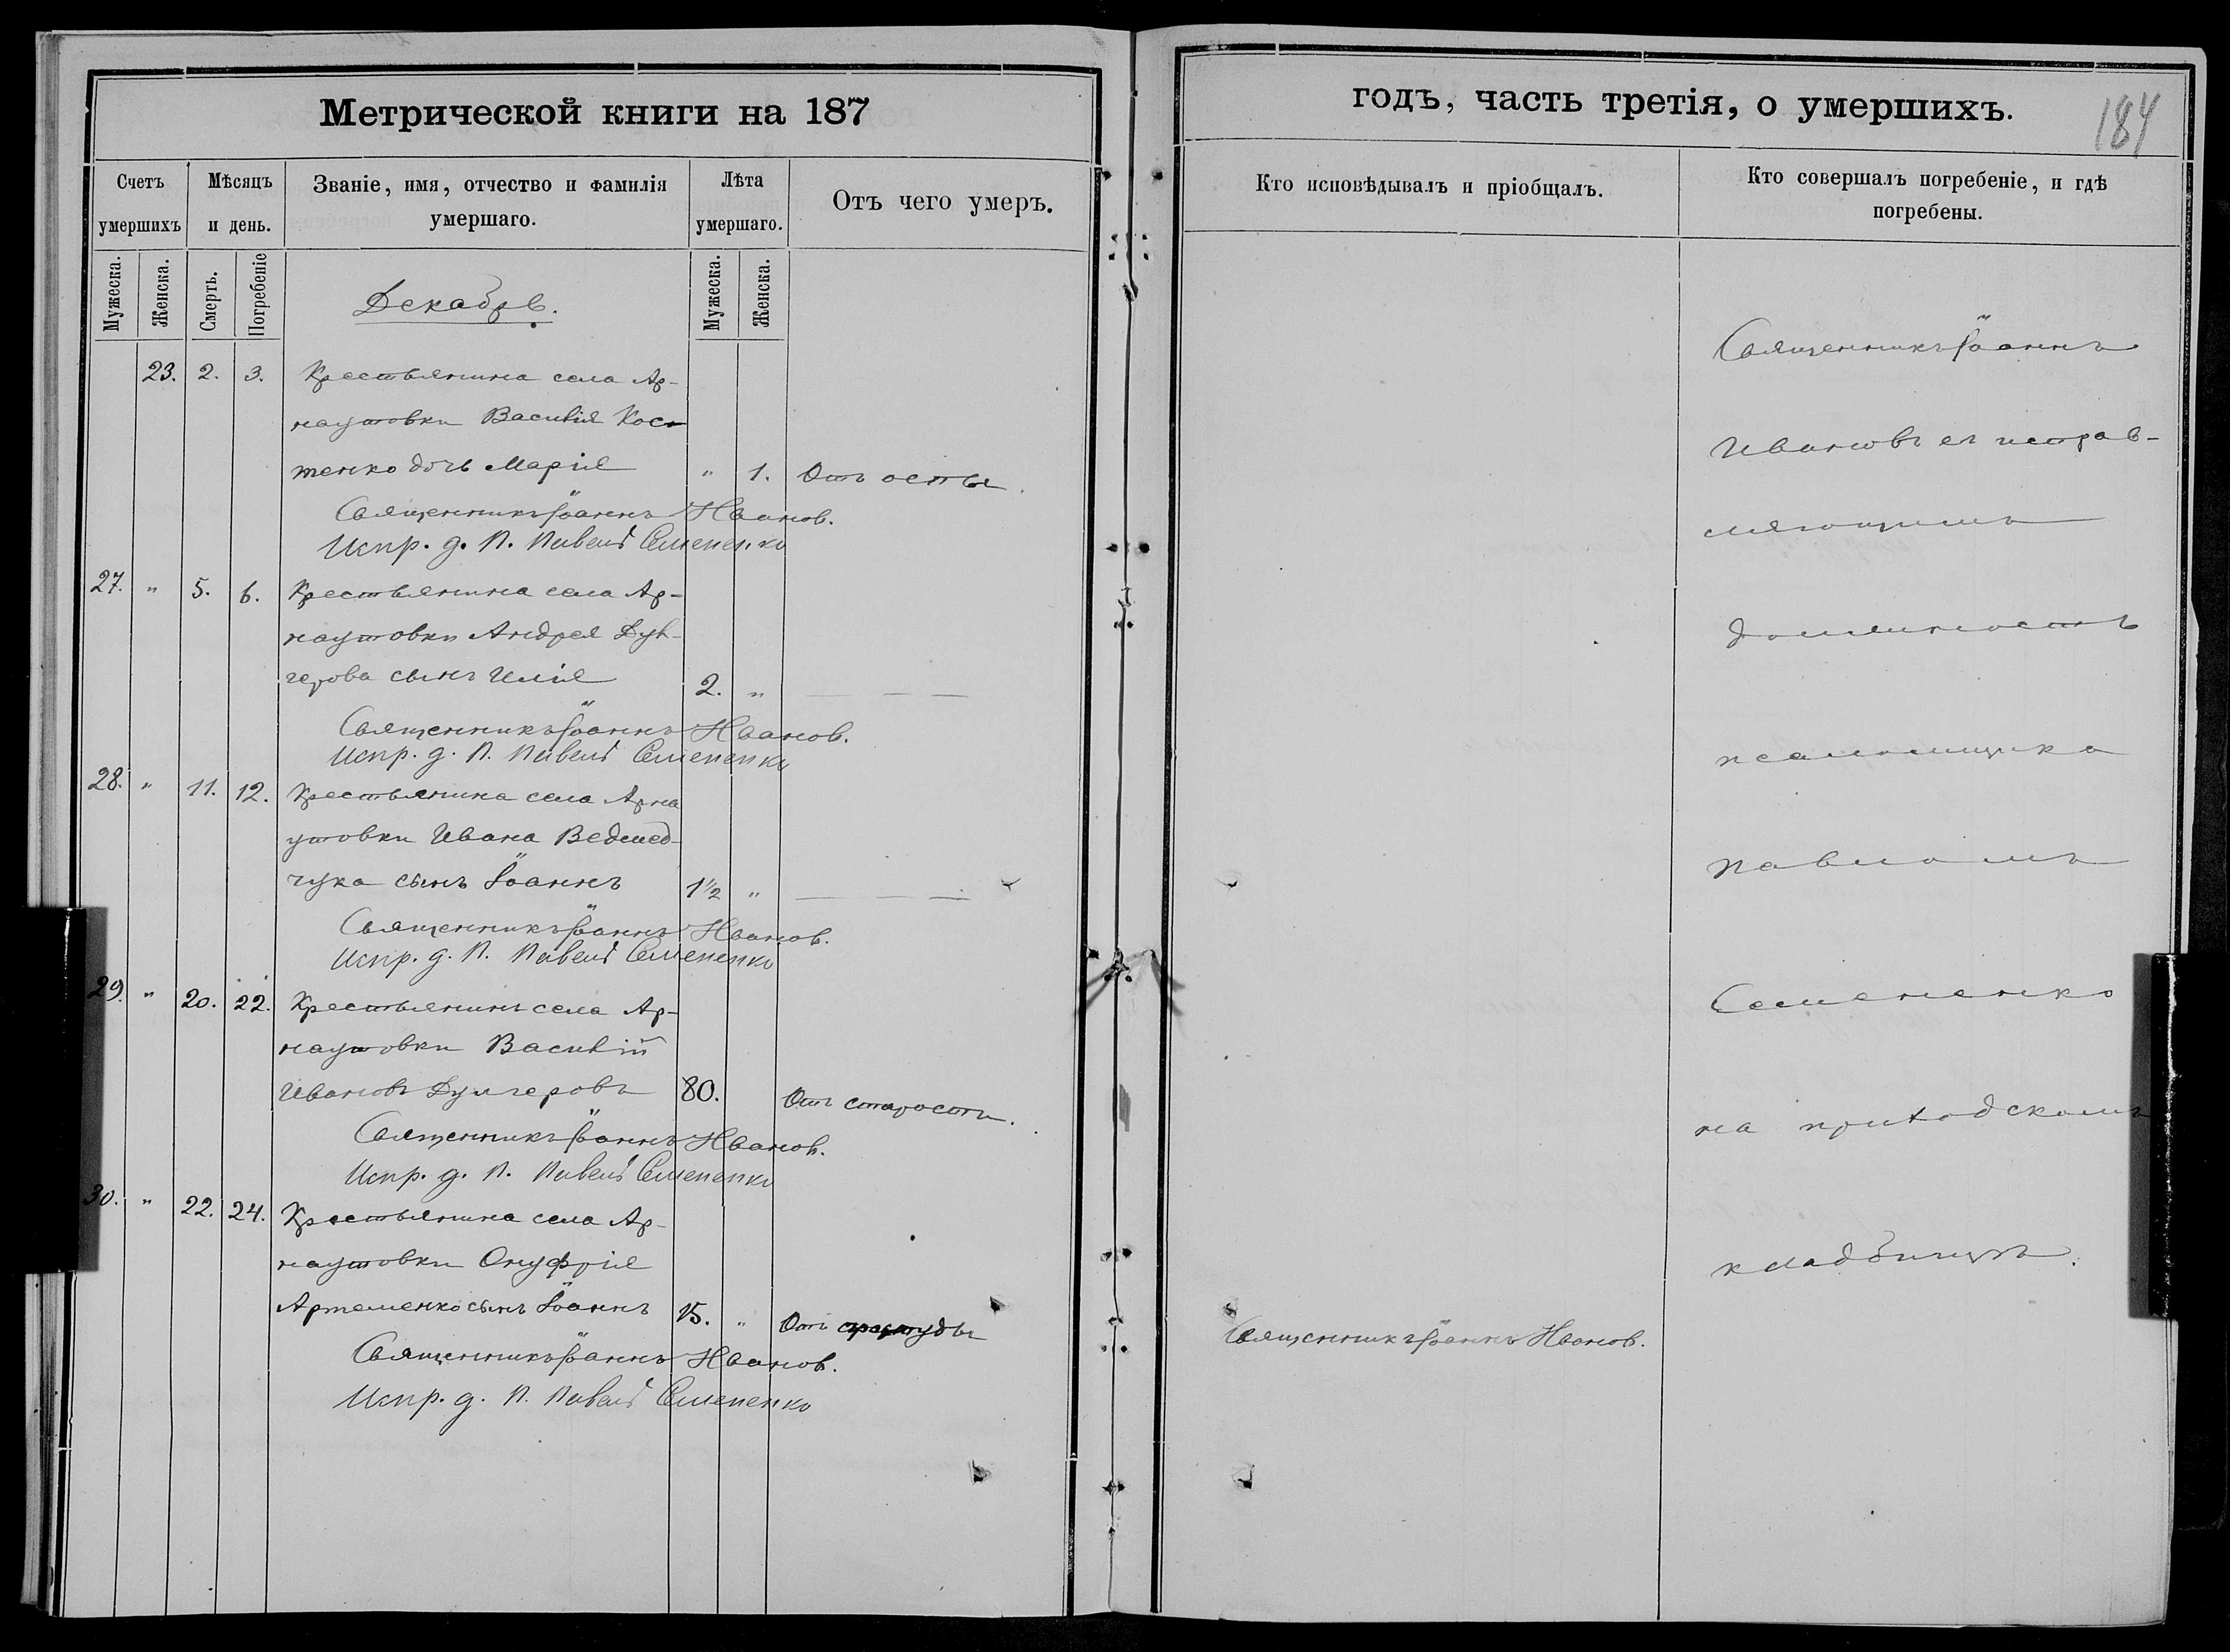 Метрической книги на 187
Счетъ умершихъ
Мѣсяцъ и день.
Званіе, имя, отчество и фамилія умершаго.
Лѣта умершаго.
Отъ чего умеръ.
Мужеска.
Женска.
Смерть.
Погребеніе
Мужеска.
Женска.
Декабрь.
23. 2. 3. Крестьянина села Ар-
наутовки Василія Кос-
тенко дочь Марія " 1. Отъ оспы.
Священникъ Іоаннъ Иванов.
Испр. д. П. Павелъ Семененко
27. " 5. 6. Крестьянина села Ар-
наутовки Андрея Дул-
герова сынъ Илія 2. " — — —
Священникъ Іоаннъ Иванов.
Испр. д. П. Павелъ Семененко
28. " 11. 12. Крестьянина села Арна
утовки Ивана Ведмед-
чука сынъ Іоаннъ 1½ " — — —
Священникъ Іоаннъ Иванов.
Испр. д. П. Павелъ Семененко
29. " 20. 22. Крестьянинъ села Ар-
наутовки Василій
Ивановъ Дулгеровъ 80. Отъ старости.
Священникъ Іоаннъ Иванов.
Испр. д. П. Павелъ Семененко
30. " 22. 24. Крестьянина села Ар-
наутовки Онуфрія
Артеменко сынъ Іоаннъ 15. " Отъ простуды
Священникъ Іоаннъ Иванов.
Испр. д. П. Павелъ Семененко
годъ, часть третія, о умершихъ.
184
Кто исповѣдывалъ и пріобщалъ.
Кто совершалъ погребеніе, и гдѣ
погребены.
Священникъ Іоаннъ
Ивановъ съ исправ-
ляющимъ
должность
псаломщика
Павломъ
Семененко
на приходскомъ
кладбищѣ.
Священникъ Іоаннъ Иванов.